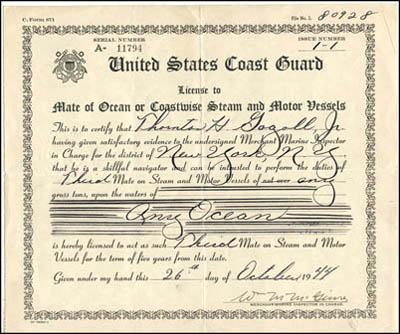 C. Form 871
File No. 2. 80928
SERIAL NUMBER
A- 11794
ISSUE NUMBER
1-1
United States Coast Guard
License to
Mate of Ocean or Coastwise Steam and Motor Vessels
This is to certify that Thornton H. Jr.
having given satisfactory evidence to the undersigned Merchant Marine Inspector
in Charge for the district of New York, N.Y.
that he is a skillful navigator and can be intrusted to perform the duties of
Third Mate on Steam and Motor Vessels of not over any
gross tons, upon the waters of
Any Ocean
is hereby licensed to act as such Third Mate on Steam and Motor
Vessels for the term of five years from this date.
Given under my hand this 26th day of October 1944
W. M.
MERCHANT MARINE INSPECTOR IN CHARGE.